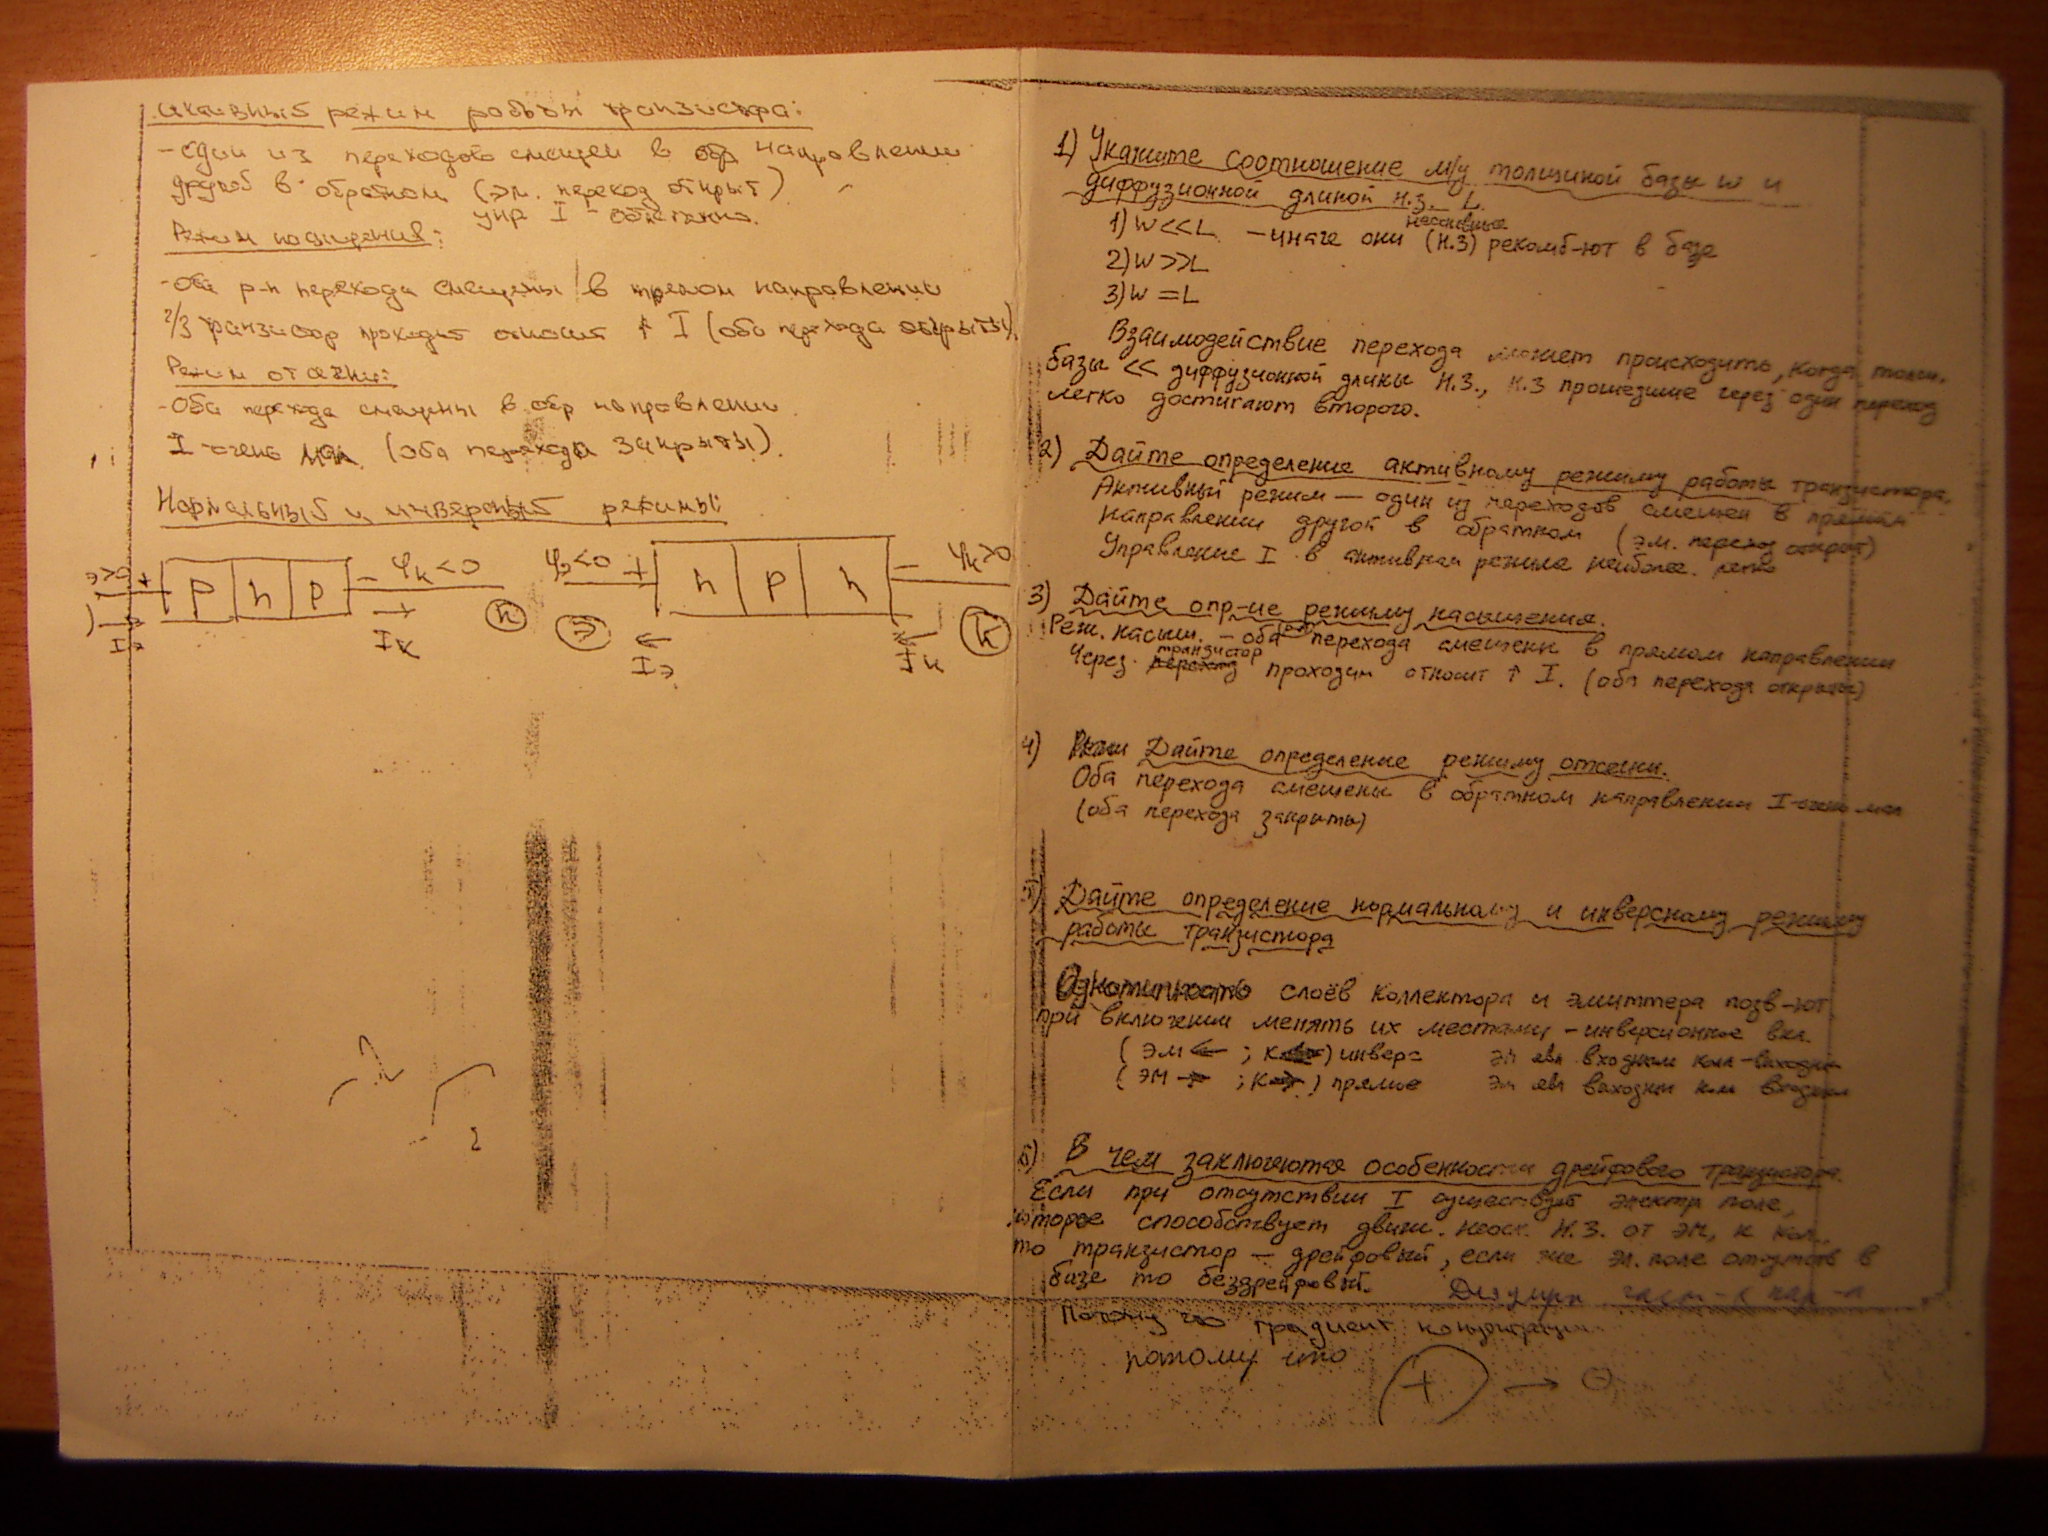 активный режим работы транзистора:
- один из переходов смещен в обр направлении
другой в обратном (эм. переход открыт)
упр I -
Режим насыщения:
- Оба p-n перехода смещены в прямом направлении
ч/з транзистор проходит относит ↑ I (оба перехода открыты).
Режим отсечки:
- Оба перехода смещены в обр направлении.
I очень мал. (оба перехода закрыты).
Нормальный и инверсный режимы:
э>0 + p n p - φк<0 φэ<0 + n p n - φк>0
Iэ Iк к э Iэ Iк к
1) Укажите соотношение м/у толщиной базы w и
диффузионной длиной н.з. L.
1) W<<L - иначе они (н.з) рекомб-ют в базе
неосновные
2) W>>L
3) W=L
Взаимодействие перехода может происходить, когда толщ.
базы << диффузионной длины н.з., н.з прошедшие через один переход
легко достигают второго.
2) Дайте определение активному режиму работы транзистора.
Активный режим — один из переходов смещен в прямом
направлении другой в обратном (эм. переход открыт)
Управление I в активном режиме наиболее. легко
3) Дайте опр-ие режиму насыщения.
Реж. насыщ. - оба (p-n) перехода смещены в прямом направлении
транзистор
Через проходит относит ↑ I. (оба перехода открыты)
4) Дайте определение режиму отсечки.
Оба перехода смещены в обратном направлении I-очень мал
(оба перехода закрыты)
5) Дайте определение нормальному и инверсному режиму
работы транзистора
Однотипность слоёв коллектора и эмиттера позв-ют
при включении менять их местами - инверсионное вкл.
(эм ← ; к ←) инвер= эм явл входным кол-выходн
(эм → ; к →) прямое эм явл выходны кол входным
6) В чем заключаются особенности дрейфового транзистора.
Если при отсутствии I существует электр поле,
которое способствует движ. неосн. н.з. от эм, к кол.,
то транзистор — дрейфовый, если же эл. поле отсутств в
базе то бездрейфовый.
Потому что градиент концентрации
потому что
+ → ⊖